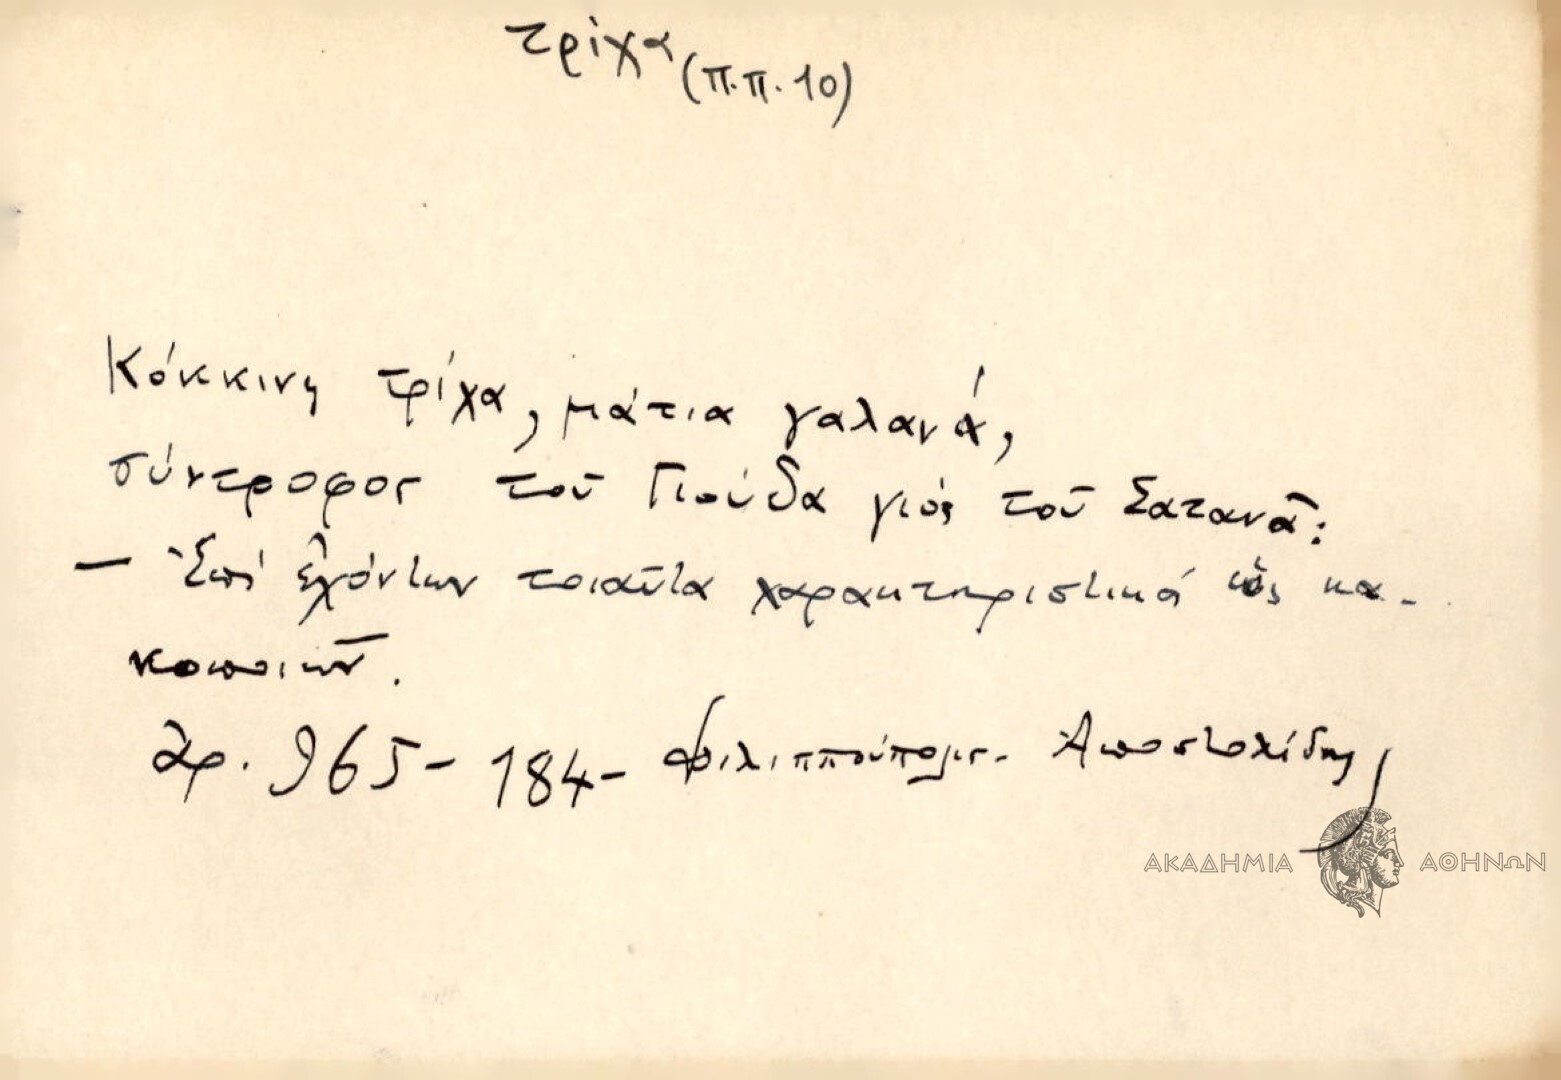 τρίχα (π.π. 10)
Κόκκινη τρίχα, μάτια γαλανά,
σύντροφος τοῦ Γιούδα γιός τοῦ Σατανᾶ:
— Ἐπί ἐχόντων τοιαῦτα χαρακτηριστικά ὡς κα-
κοποιῶν.
ἀρ. 965 - 184 - Φιλιππούπολις. Ἀποστολίδης
ΑΚΑΔΗΜΙΑ ΑΘΗΝΩΝ